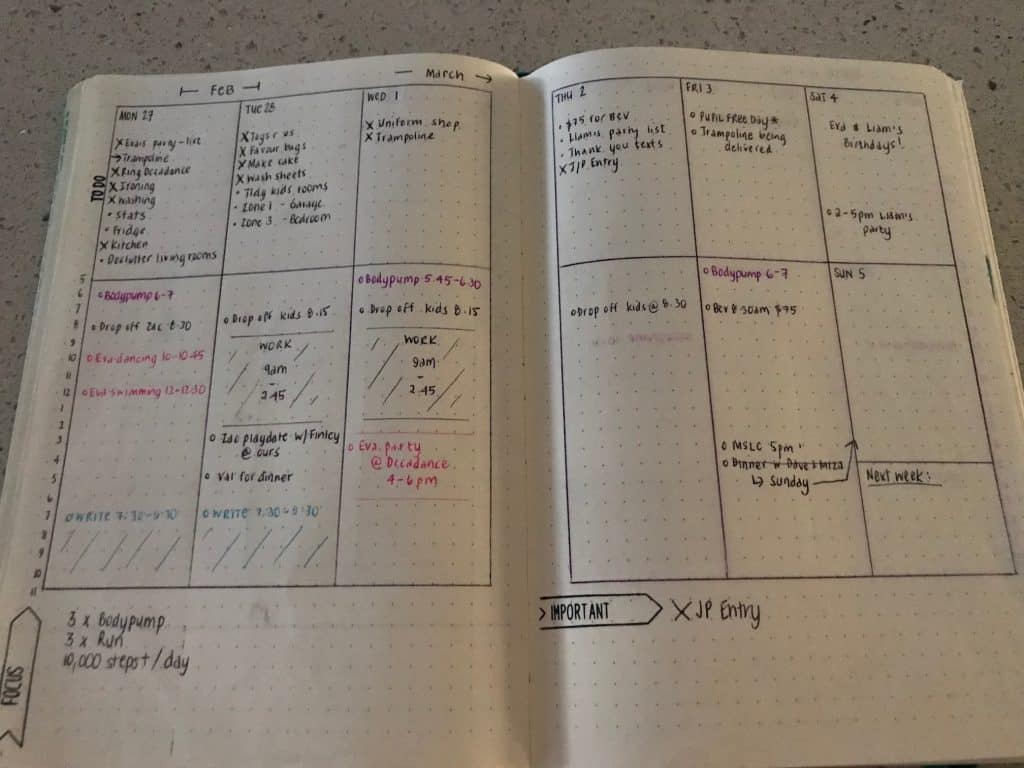 FEB
March
MON 27
TO DO
X Evas party - list
→ Trampoline
X Ring Decadance
X Ironing
X Washing
• Stats
• Fridge
X Kitchen
• Declutter living rooms
TUE 28
X Toys r us
X Favour bags
X Make cake
X Wash sheets
• Tidy kids rooms
• Zone 1 - Garage
• Zone 3 - Bedroom
WED 1
X Uniform shop
X Trampoline
5
6
7
8
9
10
11
12
1
2
3
4
5
6
7
8
9
10
11
o Bodypump 6-7
o Drop off Zac 8.30
o Eva dancing 10-10.45
o Eva swimming 12-12.30
o WRITE 7.30-9.30
o Drop off kids 8.15
WORK
9am
-
2.45
o Zac playdate w/ Finley
@ ours
o Val for dinner
o WRITE 7.30-9.30
o Bodypump 5.45-6.30
o Drop off kids 8.15
WORK
9am
-
2.45
o Eva party
@ Decadance
4-6pm
FOCUS
3 x Bodypump
3 x Run
10,000 steps+/day
THU 2
• $75 for Bev
• Liam's party list
• Thank you texts
X JP Entry
FRI 3
o PUPIL FREE DAY*
o Trampoline being
delivered
SAT 4
Eva & Liam's
Birthdays!
o 2-5pm Liam's
party
o Drop off kids @ 8.30
o Bodypump 6-7
o Bev 8.30am $75
o MSLC 5pm
o Dinner w Dave &
↳ Sunday
SUN 5
Next week:
IMPORTANT
X JP Entry